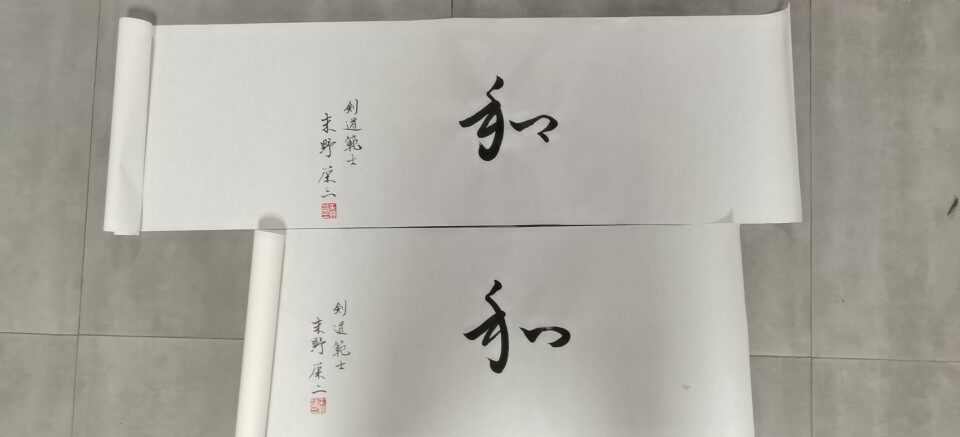 和
剣道範士
末野栄二
和
剣道範士
末野栄二